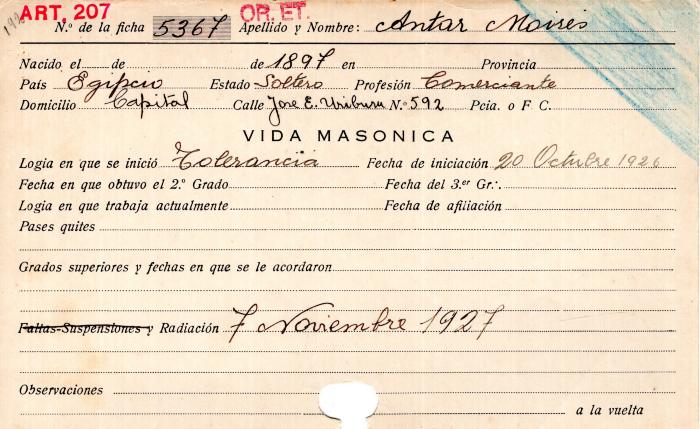 ART. 207 OR. ET.
N.º de la ficha 5367 Apellido y Nombre: Antar Moises
Nacido el de de 1897 en Provincia
País Egipcio Estado Soltero Profesión Comerciante
Domicilio Capital Calle Jose E. Uriburu N.º 592 Pcia. o F C.
VIDA MASONICA
Logia en que se inició Tolerancia Fecha de iniciación 20 Octubre 1926
Fecha en que obtuvo el 2.º Grado Fecha del 3.er Gr∴
Logia en que trabaja actualmente Fecha de afiliación
Pases quites
Grados superiores y fechas en que se le acordaron
Faltas-Suspensiones y Radiación 7 Noviembre 1927
Observaciones
a la vuelta